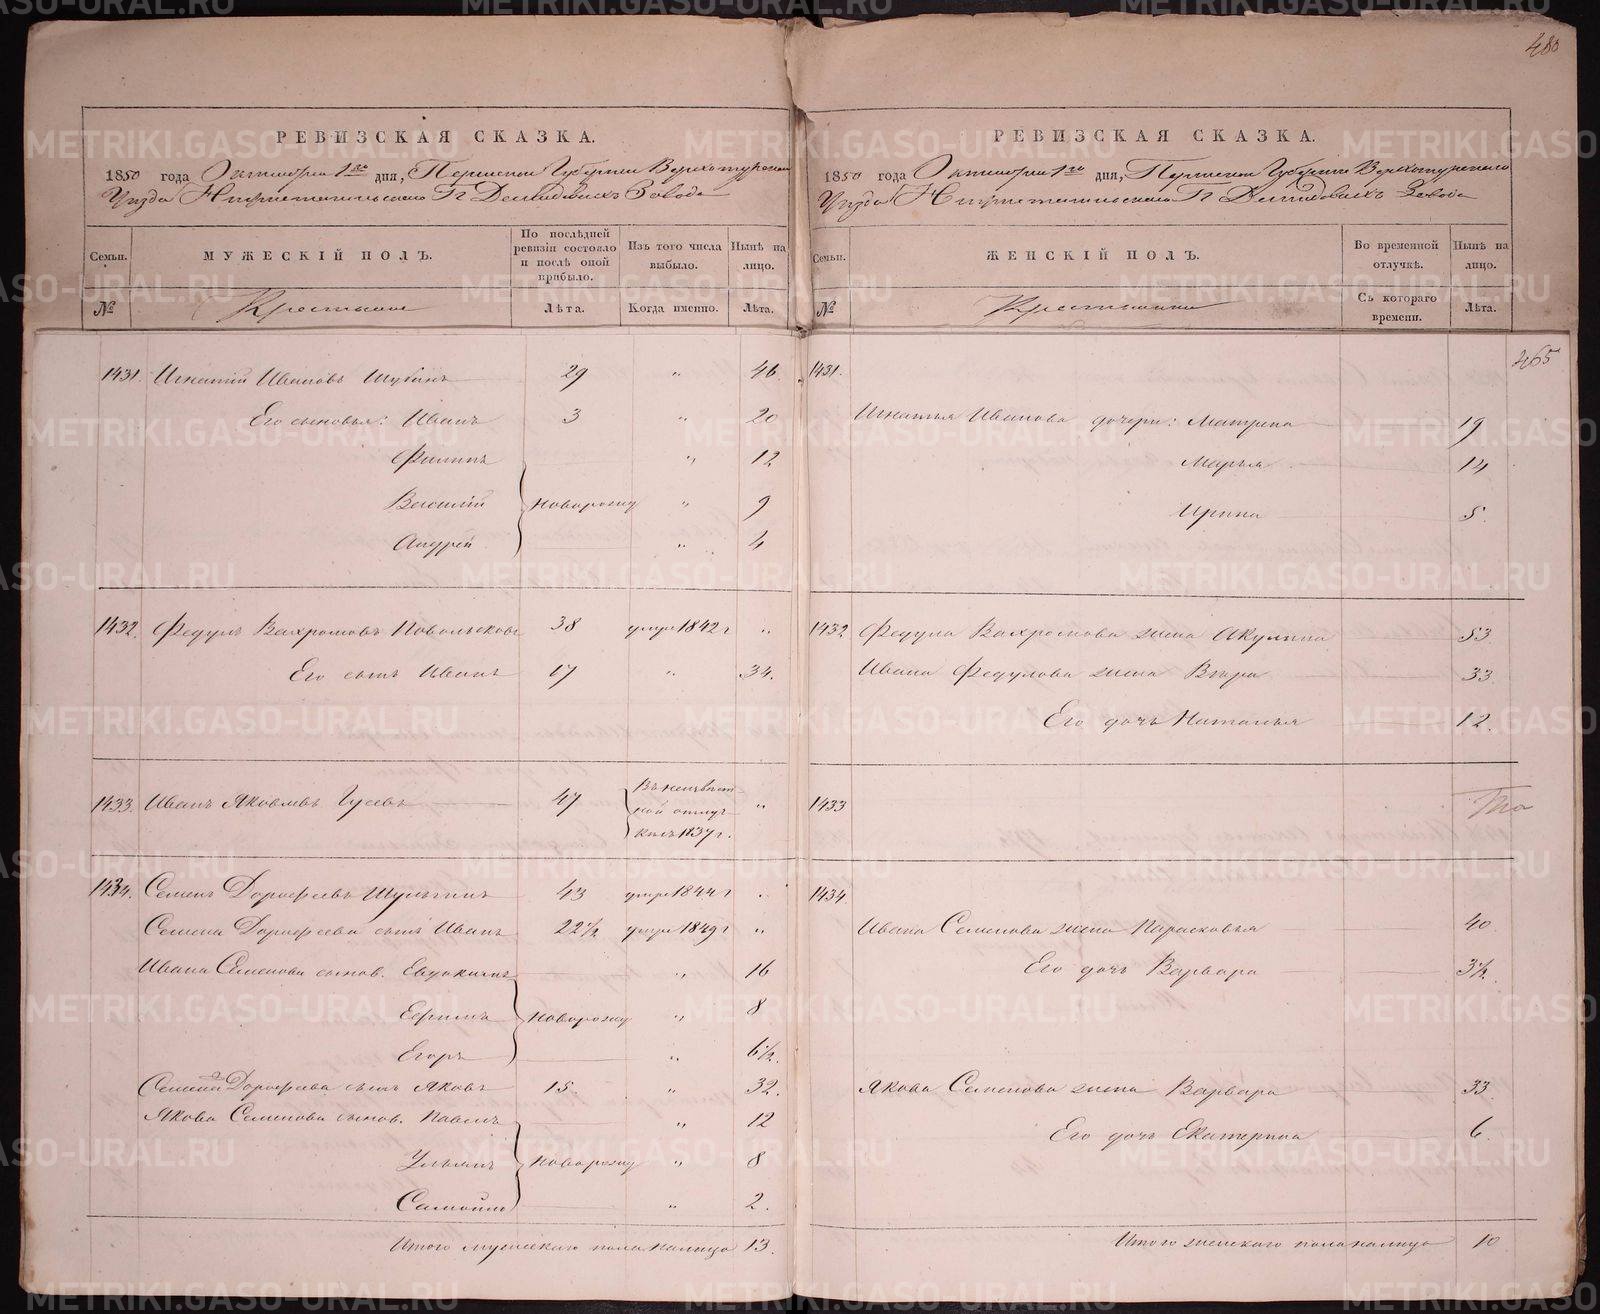 480
РЕВИЗСКАЯ СКАЗКА.
1850 года Октября 1го дня, Пермской Губернии Верхотурскаго
Уезда Нижнетагильскаго Гг Демидовыхъ Завода
Семьи. МУЖЕСКІЙ ПОЛЪ. По послѣдней ревизіи состояло и послѣ оной прибыло. Изъ того числа выбыло. Нынѣ на лицо.
№ Крестьяне Лѣта. Когда именно. Лѣта.
1431. Игнатій Ивановъ Шубинъ 29 " 46.
Его сыновья: Иванъ 3 " 20
Филипъ " 12
Василій новорожд " 9
Андрей " 4
1432. Федулъ Вахромовъ 38 умре 1842 г "
Его сынъ Иванъ 17 " 34.
1433. Иванъ Яковлевъ Гусевъ 47 Въ неизвѣст-
ной отлуч-
кѣ съ 1837 г. "
1434. Семенъ Дорофеевъ Шулегинъ 43 умре 1844 г "
Семена Дорофеева сынъ Иванъ 22½ умре 1849 г "
Ивана Семенова сынов. Евдокимъ " 16
Ефимъ новорожд " 8
Егоръ " 6½.
Семена Дорофеева сынъ Яковъ 15. " 32.
Якова Семенова сынов. Павелъ " 12
Ульянъ новорожд " 8
Самойло " 2.
Итого мужескаго пола налицо 13.
РЕВИЗСКАЯ СКАЗКА.
1850 года Октября 1го дня, Пермской Губерніи Верхотурскаго
Уезда Нижнетагильскаго Гг Демидовыхъ Завода
Семьи. ЖЕНСКІЙ ПОЛЪ. Во временной отлучкѣ. Нынѣ на лицо.
№ Крестьянки Съ котораго времени. Лѣта.
465
1431.
Игнатья Иванова дочери: Матрена 19
Марья 14
Ирина 5.
1432 Федула Вахромова жена Акулина 53
Ивана Федулова жена Вѣра 33
Его дочь Наталья 12.
1433
1434.
Ивана Семенова жена Парасковья 40
Его дочь Варвара 3½.
Якова Семенова жена Варвара 33
Его дочь Екатерина 6.
Итого женскаго пола налицо 10
METRIKI.GASO-URAL.RU